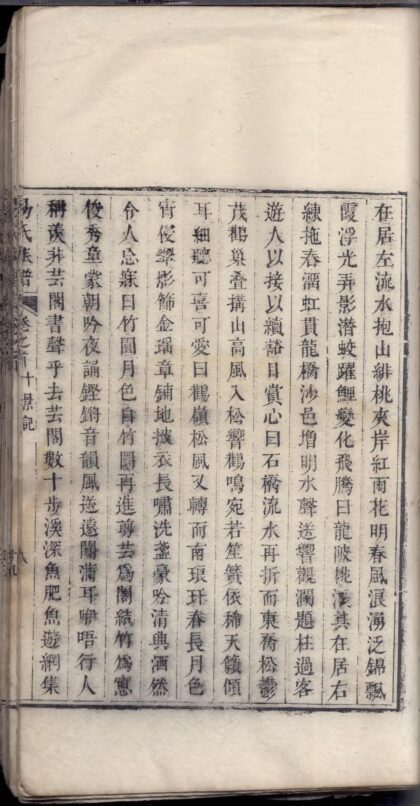 在居左流水抱山緋桃夾岸紅雨花明春風浪湧泛錦飄
霞浮光弄影潛蛟躍鯉變化飛騰曰龍陂桃浪其在居右
練拖春澗虹貫龍橋沙邑增明水聲送響觀瀾題柱過客
遊人以接以續諮目賞心曰石橋流水再折而東喬松鬱
茂鸛巢疊搆山高風入松響鸛鳴宛若笙簧依稀天籟傾
耳細聽可喜可愛曰鸛嶺松風又轉而南琅玕春長月色
宵侵翠影篩金瑤章鋪地披衣長嘯洗盞豪吟清興洒然
令人忘寐曰竹園月色自竹園再進剪芸為閣結竹為窻
俊秀童蒙朝吟夜誦鏗鏘音韻風送遠聞滿耳咿唔行人
稱羨非芸閣書聲乎去芸閣數十步溪深魚肥魚遊網集
氏族譜 卷之首 十景記